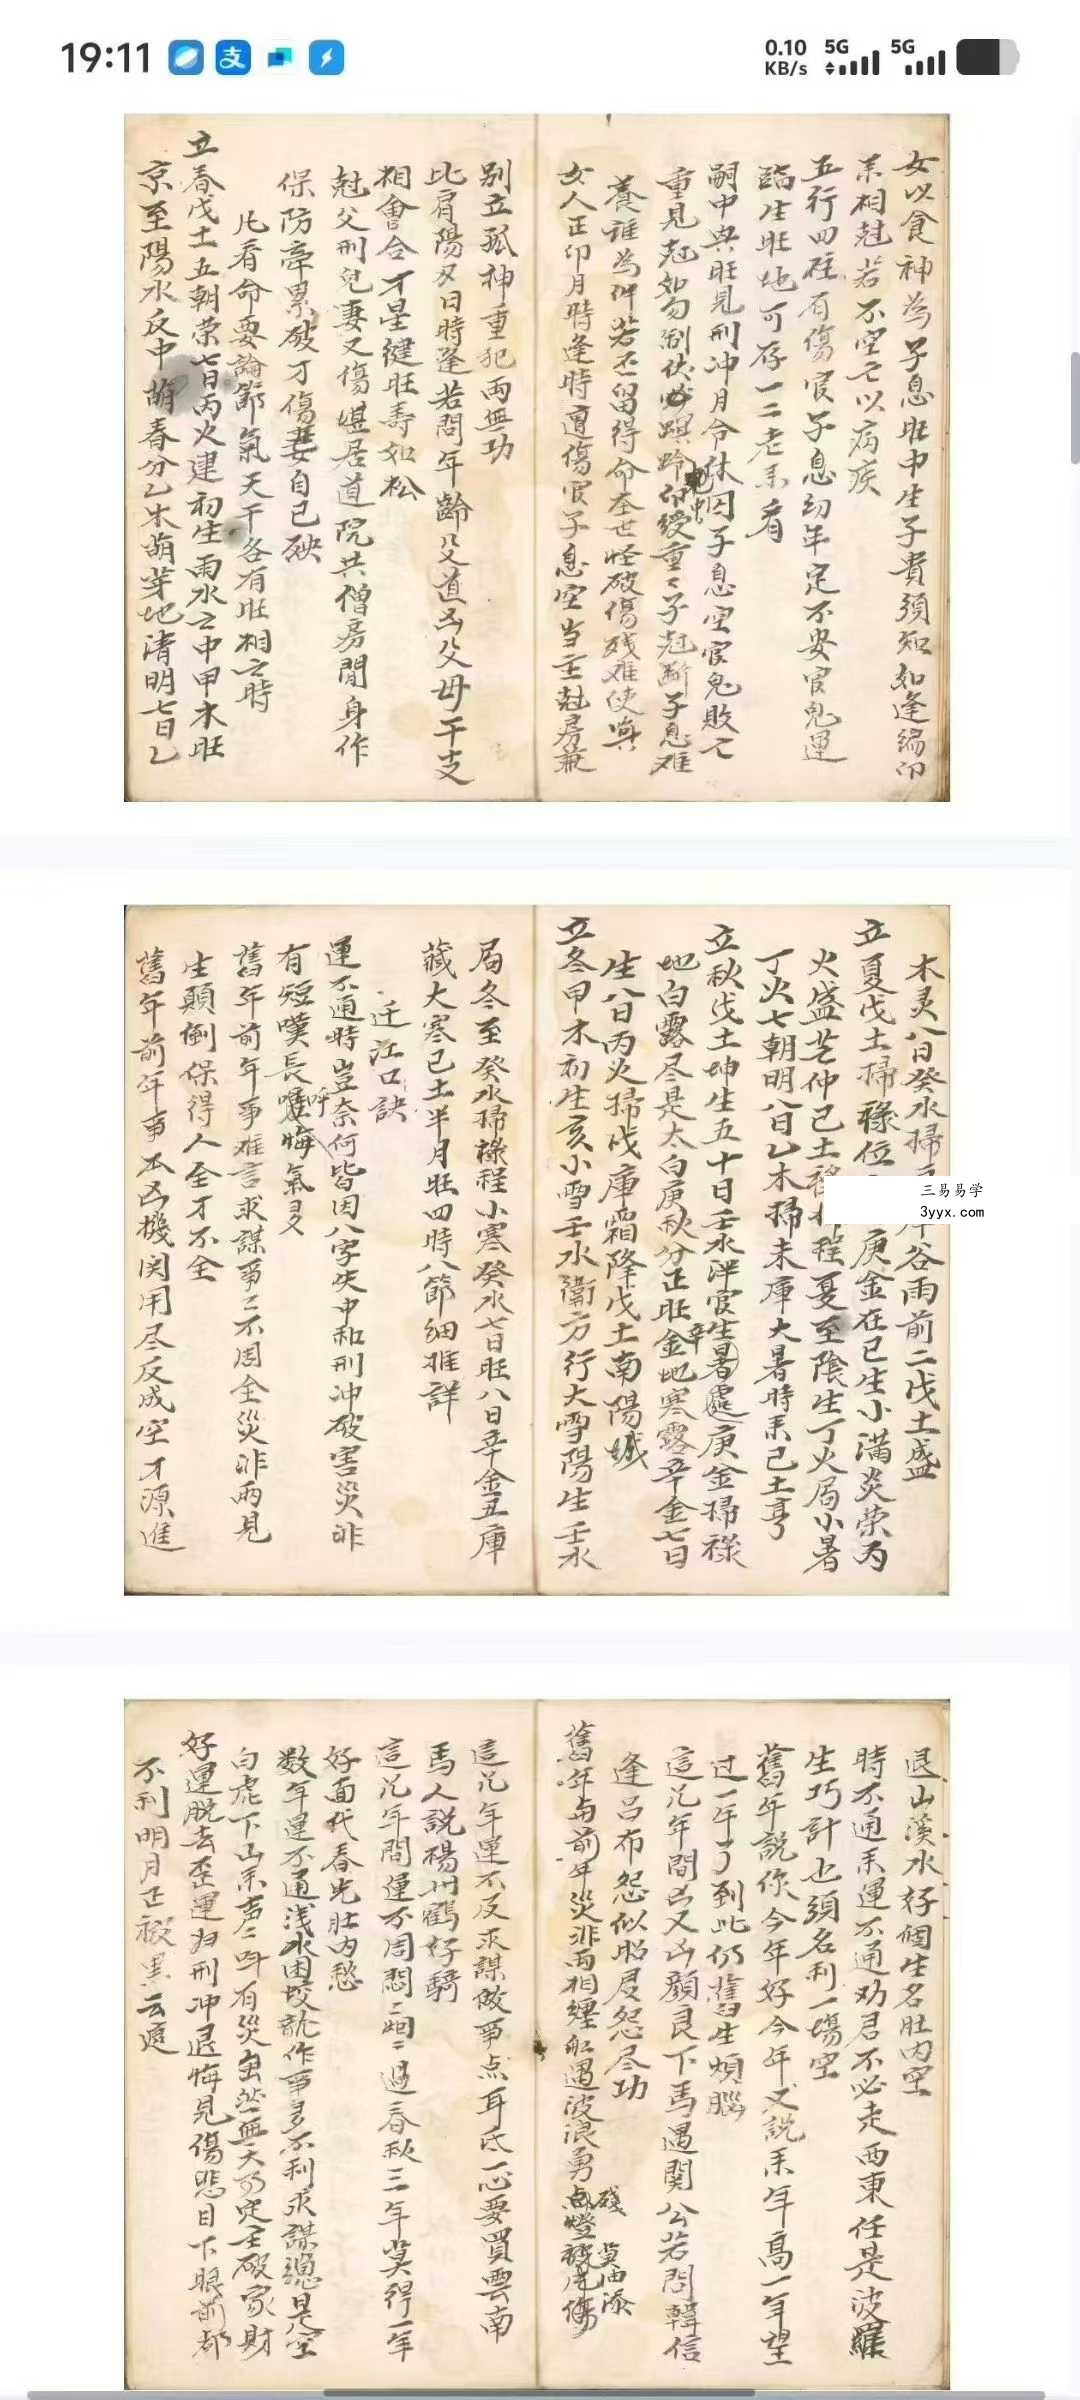 19:11
0.10 KB/s 5G 5G
女以食神為子息旺中生子貴須知如逢編印
来相尅若不空亡以病疾
五行四柱有傷官子息幼年定不安官鬼運
臨生旺地可存一二老来看
嗣中與旺見刑冲月令休囚子息空官鬼敗亡
重見尅如勿制伏必螟蛉印綬重〻子尅斷子息难
養誰為伴若不留得命在世怪破傷残难使與
女人正卯月時逢時遭傷官子息空当主尅房兼
别立孤神重犯两無功
比肩陽刃日時逢若問年齡父道凶父母干支
相會合才星健旺寿如松
尅父刑兒妻又傷堪居道院共僧房閒身作
保防牽累破才傷妻自己殃
凡看命要論節氣天干各有旺相之時
立春戊土五朝荣七日丙火建初生雨水之中甲木旺
京至陽水反中萌春分乙木萌芽地清明七日乙
木灵八日癸水掃 庫谷雨前二戊土盛
立夏戊土掃祿位 庚金在巳生小满炎荣丙
火盛芒仲己土 程夏至陰生丁火局小暑
丁火七朝明八日乙木掃未庫大暑時来己土亨
立秋戊土坤生五十日壬水泮官生暑處庚金掃祿
地白露尽是太白庚秋分正旺辛金地寒露辛金七日
生八日丙火掃戊庫霜降戊土南陽城
立冬甲木初生亥小雪壬水衛方行大雪陽生壬水
三易易学
3yyx.com
局冬至癸水掃祿程小寒癸水七日旺八日辛金丑庫
藏大寒己土半月旺四時八節細推詳
迁江口訣
運不通時豈奈何皆因八字失中和刑冲破害災非
有短嘆長呼悔氣多
舊年前年事难言求謀事〻不周全災非两見
生顛倒保得人全才不全
舊年前年事不凶機関用尽反成空才源進
退山溪水好個生名肚内空
時不通来運不通劝君不必走西東任是波羅
生巧計也須名利一場空
舊年說你今年好今年又說来年高一年望
过一年了到此仍舊生煩腦
這几年間凶又凶顏良下馬遇関公若問韓信
逢呂布怨似昭君怨尽功
舊年与前年災非两相纏船遇波浪勇
這几年運不反求謀做事点耳氏一心要買雲南
馬人說楊州鶴好騎
這几年間運不周悶〻 〻過春秋三年莫得一年
好面代春光肚内愁
数年運不通浅水困蛟龍作事多不利求謀總是空
白虎下山来声〻呌有災虽然無大的定主破家財
好運脱去歪運归刑冲退悔見傷悲目下眼前都
不利明月正被黑云遮